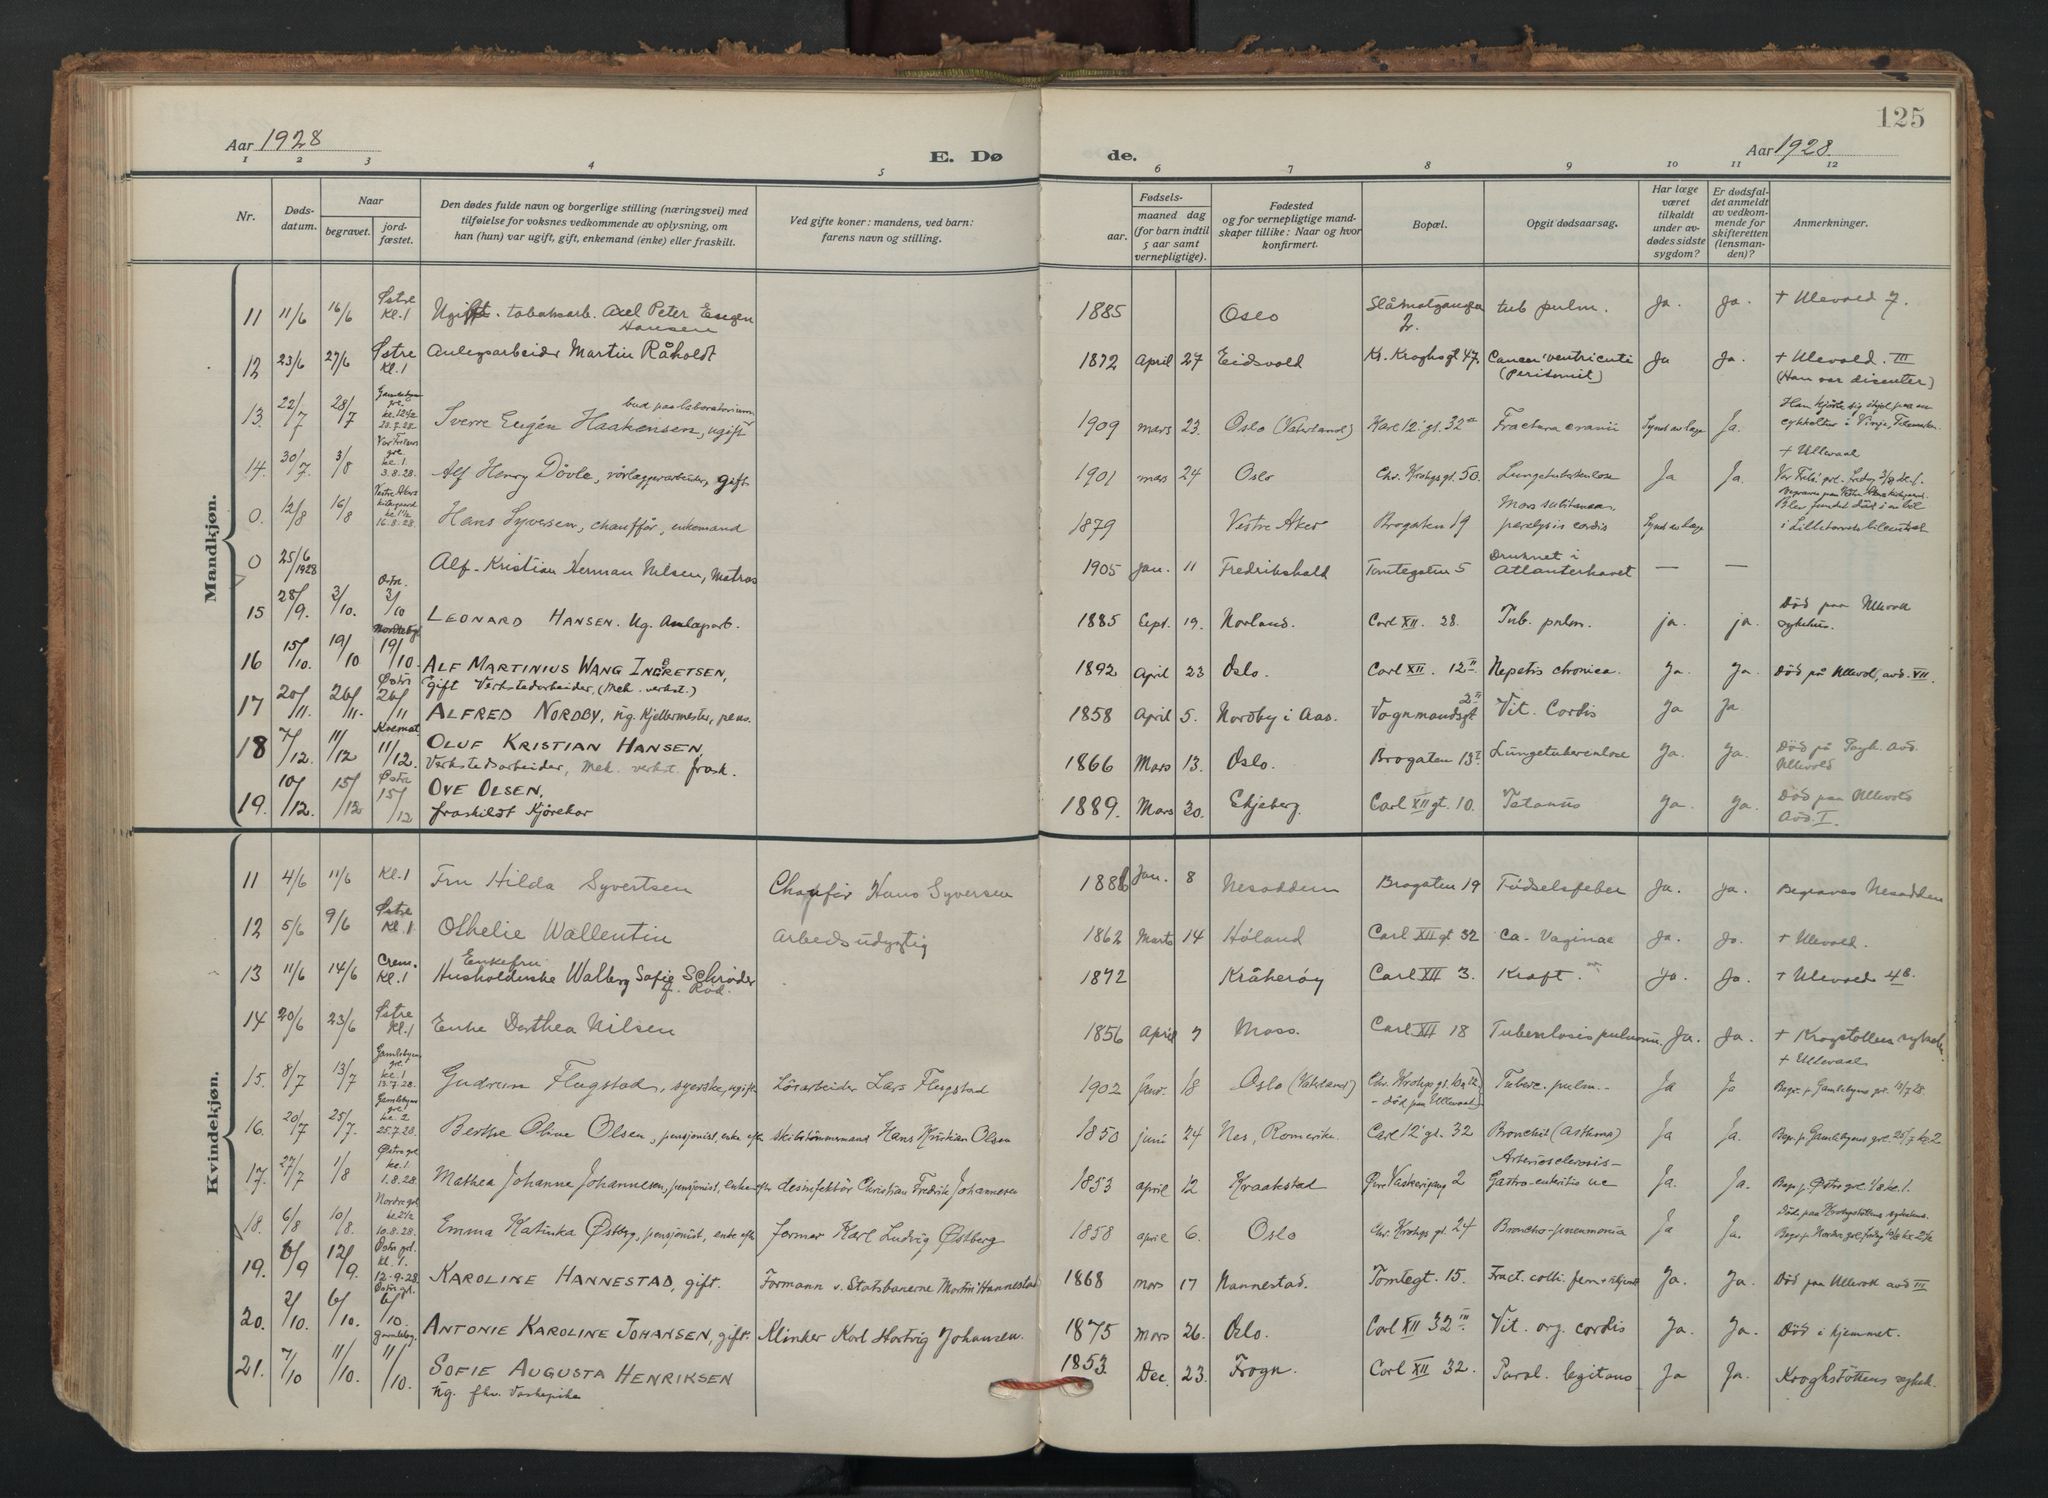 125
Aar 1928
E. Dø
de.
Aar 1928.
1 2 3 4 5 6 7 8 9 10 11 12
Nr.
Døds-
datum.
Naar
begravet.
jord-
fæstet.
Den dødes fulde navn og borgerlige stilling (næringsvei) med
tilføielse for voksnes vedkommende av oplysning, om
han (hun) var ugift, gift, enkemand (enke) eller fraskilt.
Ved gifte koner: mandens, ved barn:
farens navn og stilling.
Fødsels-
aar. maaned dag
(for barn indtil
5 aar samt
vernepligtige).
Fødested
og for vernepligtige mand-
skaper tillike: Naar og hvor
konfirmert.
Bopæl.
Opgit dødsaarsag.
Har læge
været
tilkaldt
under av-
dødes sidste
sygdom?
Er dødsfal-
det anmeldt
av vedkom-
mende for
skifteretten
(lensman-
den)?
Anmerkninger.
Mandkjøn.
11 11/6 16/6 Østre Kl.1 Ugift tobaksarb. Axel Peter Eugen
Hansen 1885 Oslo 2. tub pulm. Ja. Ja. + Ullevold 7.
12 23/6 27/6 Østre Kl.1 Anlegsarbeider Martin Råholdt 1872 April 27 Eidsvold Kr. Kroghsgt 47. Cancer ventriculi
(Peritonit) Ja Ja. + Ullevold. III
(Han var disenter)
13. 22/7 28/7 Gamlebyen grl. kl. 12½ 28.7.28. bud paa laboratorium
Sverre Eugén Haakensen, ugift 1909 mars 23. Oslo (Vaterland) Karl 12' gt. 32 Fractura cranii Synet av læge Ja. Han kjørte sig ihjel paa en
cykkeltur i Vinje, Telemarken.
14. 30/7. 3/8 Vor Frelsers grl. kl. 1 3.8.28. Alf Henry Døvle, rørlæggerarbeider, gift 1901 mars 24 Oslo Chr. Krohgs gt. 50. Lungetuberkulose Ja Ja. + Ullevaal
Vor Frels. grl. fredag 3/8 kl. 1.
0. 12/8 16/8 Vestre Akers kirkegaard kl. 1½ 16.8.28. Hans Syversen, chauffør, enkemand 1879 Vestre Aker Brogaten 19 Mors subitanea,
paralysis cordis Synet av læge Begraves paa Vestre Akers kirkegaard.
Blev fundet død i en bil
i Lilletorvets bilcentral
0 25/6 1928 Alf Kristian Herman Nilsen, Matros 1905 Jan. 11 Fredrikshald Tomtegaten 5 Druknet i
Atlanterhavet — —
15 28/9. 3/10. Østre 3/10 LEONARD HANSEN. Ug. Anlegsarb. 1885 Sept. 19. Norland. Carl XII. 28. Tub. pulm. ja. ja. Död paa Ullevol
sykehus.
16 15/10. 19/10 19/10. ALF MARTINIUS WANG INGERETSEN,
Gift Verkstedarbeider, (Mek. verkst.) 1892 April 23 Oslo. Carl XII. 12 II Nepetis chronica. Ja. Ja Död på Ullevol, avd. VII.
17 20/11. 26/11. Østre 26/11 ALFRED NORDBY, ug. Kjellermester, pens. 1858 April 5. Nordby i Aas. Vognmandsgt 2 II Vit. Cordis Ja Ja
18 7/12. 11/12 Kremat. 11/12. OLUF KRISTIAN HANSEN,
Verkstedsarbeider, Mek. verkst. frask. 1866 Mars 13. Oslo. Brogaten 13 I Lungetuberkulose Ja. Ja. Död på Psyk. Avd.
Ullevold
19. 10/12. 15/12 Østre 15/12 OVE OLSEN,
fraskildt Kjørekar 1889. Mars 20. Ekjeberg. Carl XII gt. 10. Tetanus Ja. Ja. Död paa Ullevold
Avd. I.
Kvindekjøn.
11 4/6 11/6 Kl.1 Fru Hilda Syvertsen Chaufför Hans Syversen 1886 Jan. 8 Nesodden Brogaten 19 Födselsfeber Ja. Ja. Begraves Nesodden
12 5/6 9/6 Østre Kl.1 Othelie Wallentin Arbeds udygtig 1862 Marts 14 Höland Carl XII gt 32 Ca. Vaginae Ja. Ja. + Ullevold.
13 11/6 14/6 Crem. Kl.1 Enkefru
Husholderske Walborg Sofie Schrøder
f. Rød. 1872 Kråkerøy Carl XII 3. Kraft. Ja. Ja. + Ullevold 4 B.
14 20/6 23/6 Østre Kl.1 Enke Dorthea Nilsen 1856 April 7 Moss. Carl XII 18 Tuberkulosis pulmonum Ja. Ja. + Krogstöttens sykeh.
15. 8/7 13/7 Gamlebyens grl. kl. 1 13.7.28. Gudrun Flugstad, syerske, ugift Lörarbeider Lars Flugstad 1902 18 Oslo (Vaterland) Chr. Krohgs gt. 10a
- död paa Ullevaal Tuberc. pulm. Ja Ja + Ullevaal
Begr. p. Gamlebyens grl. 13/7 28.
16. 20/7 25/7. Gamlebyens grl. kl. 2 25.7.28. Berthe Oline Olsen, pensjonist, enke efter skibstömmermand Hans Kristian Olsen 1850 juni 24 Nes, Romerike. Carl 12' gt. 32 Bronchit (Asthma) Ja Ja. Begr. p. Gamlebyens grl. 25/7 kl. 2
17. 27/7 1/8 Østre grl. kl. 1 1.8.28. Mathea Johanne Johannesen, pensjonist, enke efter desinfektör Christian Fredrik Johannesen 1853 april 12 Kraakstad 2 Arteriosclerosis-
Gastro-enteritis Ja. Ja. Begr. p. Østre grl. 1/8 kl. 1.
18. 6/8 10/8. Nordre grl. kl. 2½ 10.8.28. Emma Katinka Østberg, pensjonist, enke efter former Karl Ludvig Østberg 1858 april 6. Oslo Chr. Krohgs gt. 24 Broncho-pneumonia Ja Ja. Död paa Krohgstöttens sykehus.
Begr. p. Nordre grl. fredag 10/8 kl. 2½
19. 6/9 12/9. Østre grl. kl. 1. 12.9.28. KAROLINE HANNESTAD, gift. Formann v. Statsbanerne Martin Hannestad 1868 mars 17 Nannestad. Tomtegt. 15. Fract. colli. fem. Ja. Ja. Död paa Ullevol avd III
20. 2/10. 6/10. Østre grl. 6/10. ANTONIE KAROLINE JOHANSEN, gift. Klinker Karl Hartvig Johansen. 1875 Mars 26. Oslo. Carl XII 32 III Vit. org. cordis Ja. Ja. Död i hjemmet.
21. 7/10 11/10. Gamleby. 11/10. SOFIE AUGUSTA HENRIKSEN
ug. fhv. Vaskepike 1853 Dec. 23. Frogn. Carl XII 32. Paral. Ja Ja. Kroghstöttens sykeh.